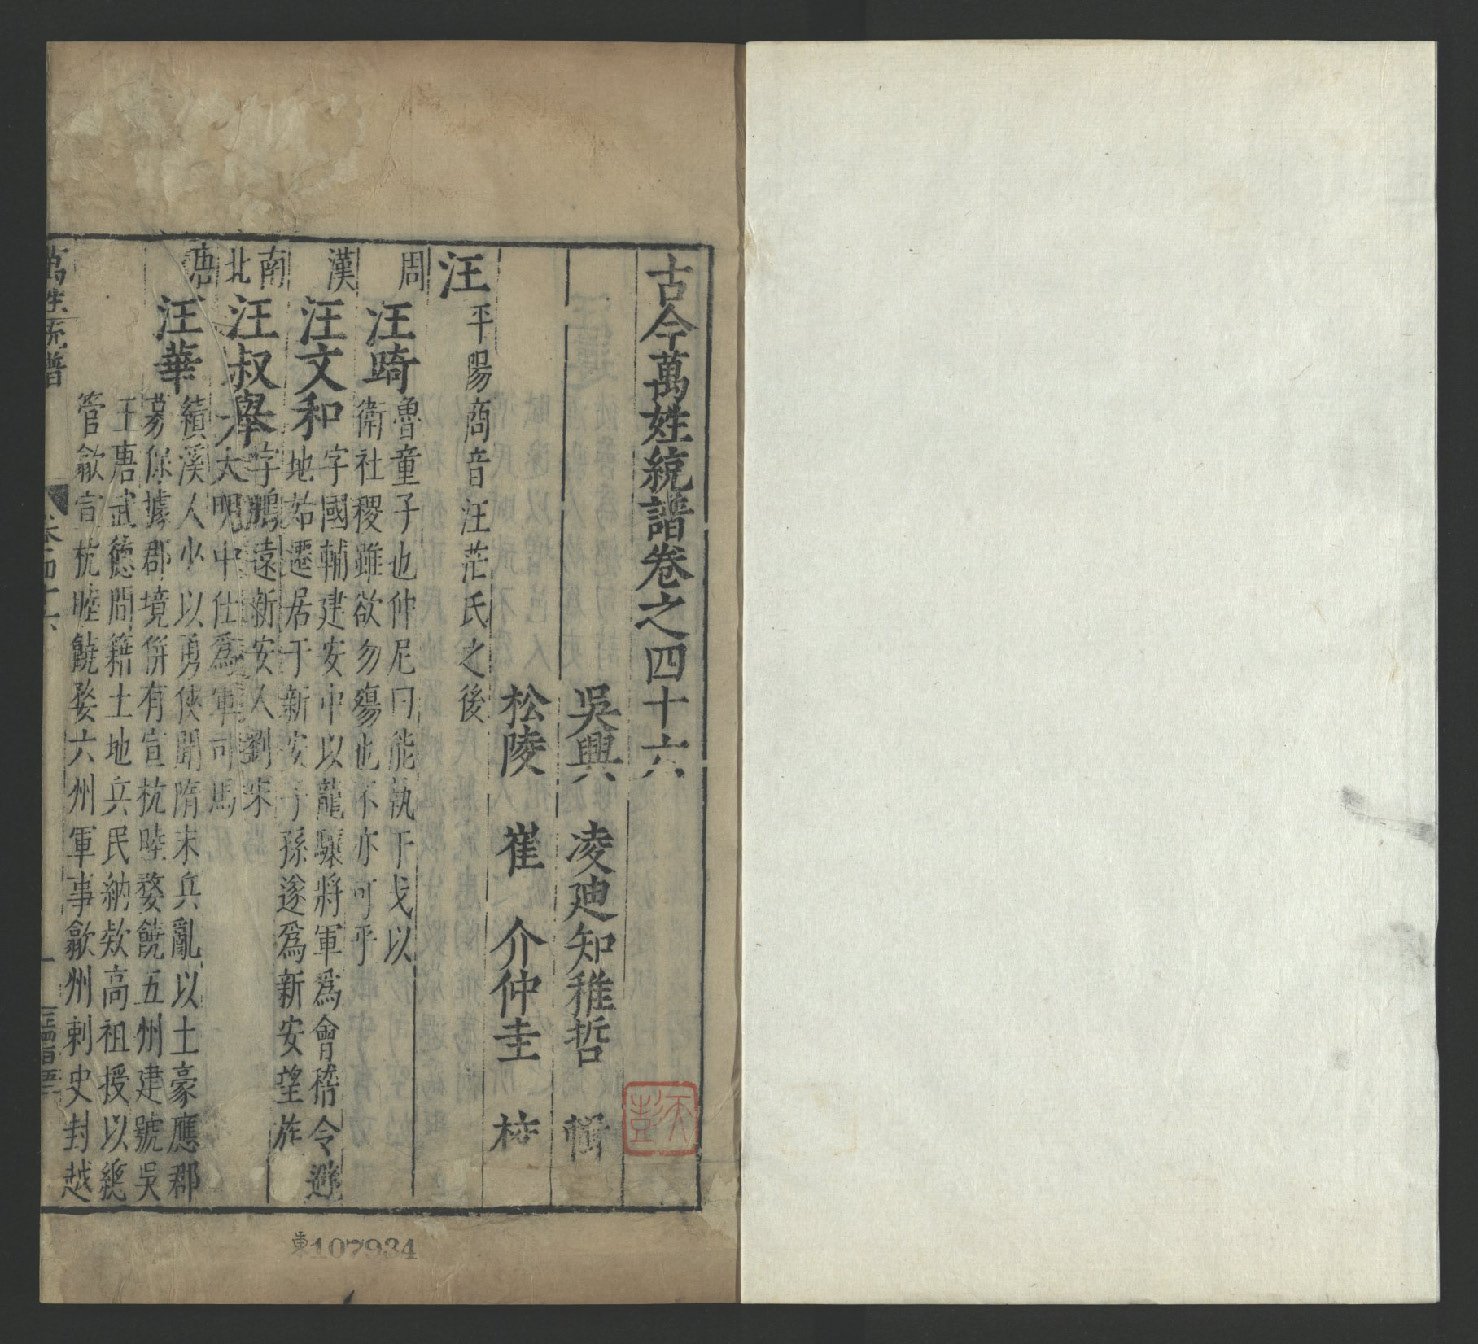 古今萬姓統譜卷之四十六
吳興 凌迪知稚哲 輯
松陵 崔 介仲圭 校
汪 平陽商音汪茫氏之後
周
汪踦 魯童子也仲尼曰能執干戈以
衛社稷雖欲勿殤也不亦可乎
漢
汪文和 字國輔建安中以龍驤將軍爲會稽令避
地始遷居于新安子孫遂爲新安望族
南北
汪叔舉 字鵬遠新安人劉宋
大明中仕爲軍司馬
唐
汪華 績溪人少以勇俠聞隋末兵亂以土豪應郡
募保據郡境併有宣杭睦婺饒五州建號吳
王唐武德間籍土地兵民納欵高祖授以總
管歙宣杭睦饒婺六州軍事歙州刺史封越
萬姓統譜 卷四十六 一
107934